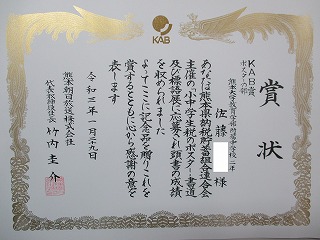 KAB
賞状
KAB賞
ポスターの部
熊本大学教育学部附属中学校 二年
佐藤 様
あなたは熊本県納税貯蓄組合連合会
主催の「小中学生税のポスター・書道
及び標語展」に応募され頭書の成績
を収められました
よってここに記念品を贈りこれを
賞するとともに心から感謝の意を
表します
令和三年一月二十九日
熊本朝日放送株式会社
代表取締役社長 竹内圭介